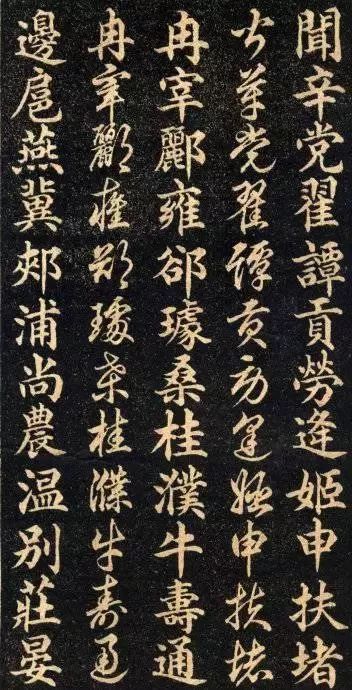 聞辛党翟譚貢勞逄姬申扶堵
聞莘党翟譚貢勞逄姬申扶堵
冉宰酈雍郤璩桑桂濮牛壽通
冉宰酈雍郤璩桑桂濮牛壽通
邊扈燕冀郟浦尚農温別莊晏